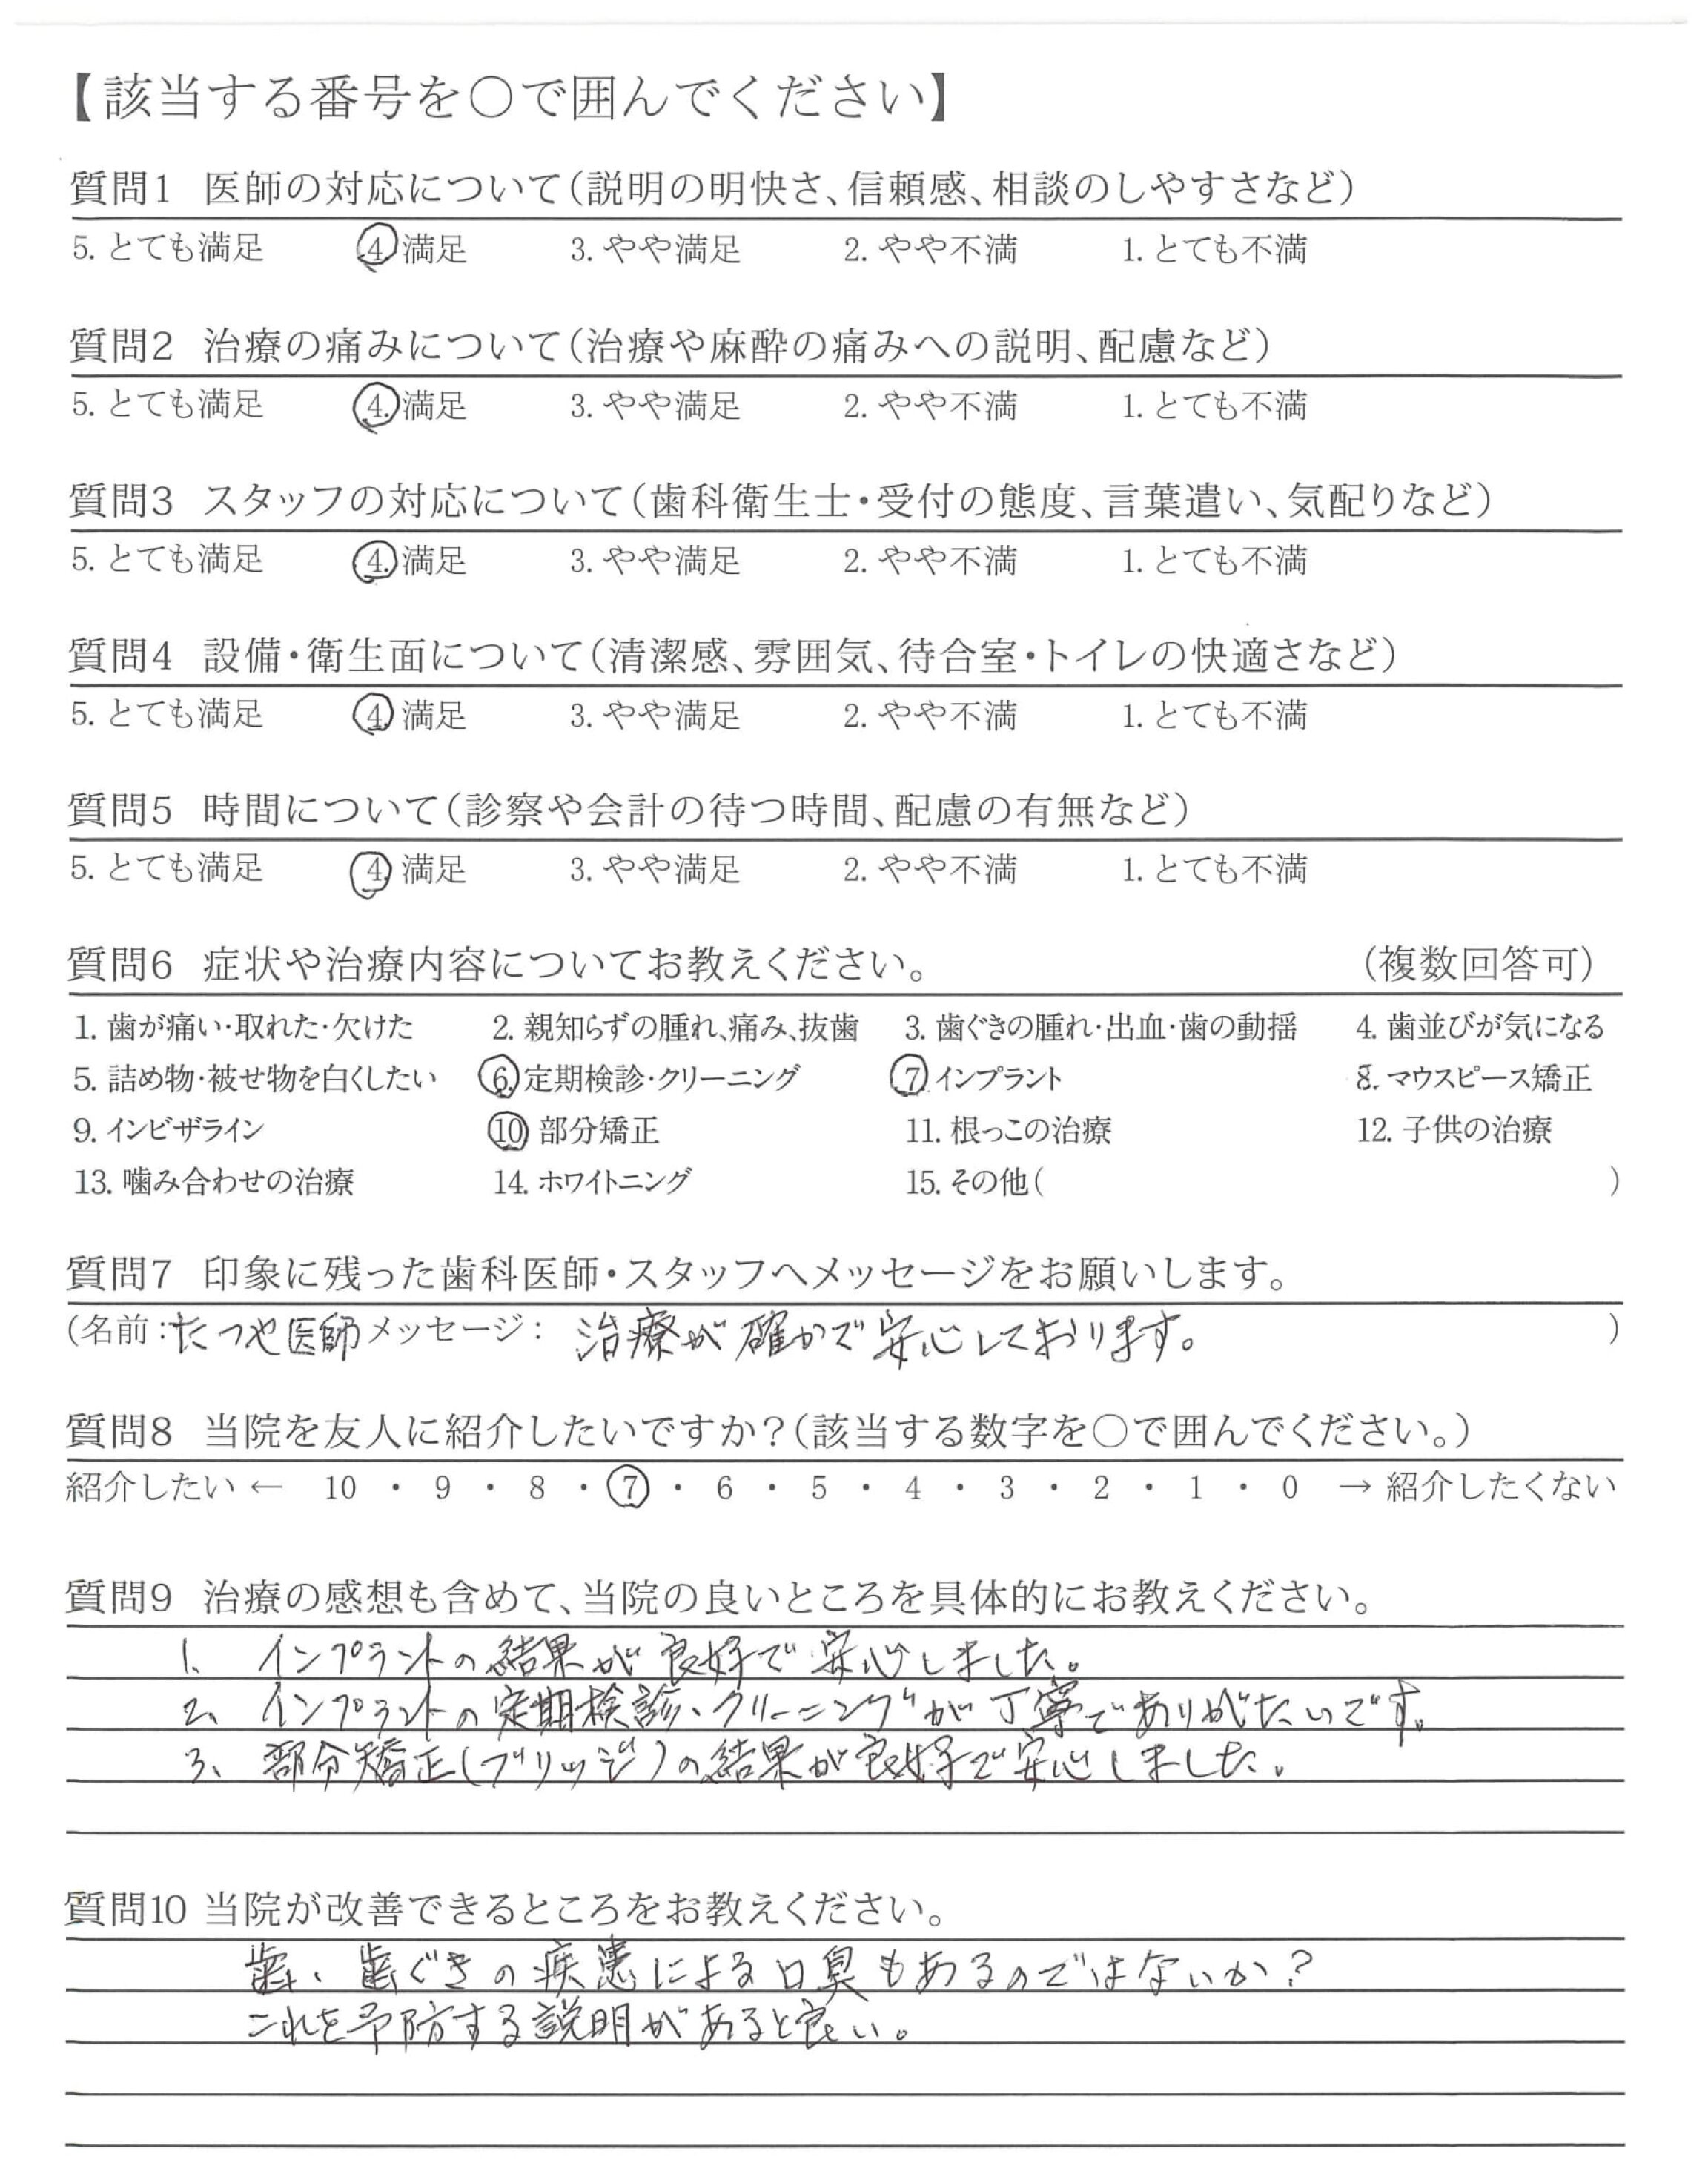 【該当する番号を○で囲んでください】
質問1 医師の対応について（説明の明快さ、信頼感、相談のしやすさなど）
5. とても満足 4. 満足 3. やや満足 2. やや不満 1. とても不満
質問2 治療の痛みについて（治療や麻酔の痛みへの説明、配慮など）
5. とても満足 4. 満足 3. やや満足 2. やや不満 1. とても不満
質問3 スタッフの対応について（歯科衛生士・受付の態度、言葉遣い、気配りなど）
5. とても満足 4. 満足 3. やや満足 2. やや不満 1. とても不満
質問4 設備・衛生面について（清潔感、雰囲気、待合室・トイレの快適さなど）
5. とても満足 4. 満足 3. やや満足 2. やや不満 1. とても不満
質問5 時間について（診察や会計の待つ時間、配慮の有無など）
5. とても満足 4. 満足 3. やや満足 2. やや不満 1. とても不満
質問6 症状や治療内容についてお教えください。 （複数回答可）
1. 歯が痛い・取れた・欠けた 2. 親知らずの腫れ、痛み、抜歯 3. 歯ぐきの腫れ・出血・歯の動揺 4. 歯並びが気になる
5. 詰め物・被せ物を白くしたい 6. 定期検診・クリーニング 7. インプラント 8. マウスピース矯正
9. インビザライン 10. 部分矯正 11. 根っこの治療 12. 子供の治療
13. 噛み合わせの治療 14. ホワイトニング 15. その他（ ）
質問7 印象に残った歯科医師・スタッフへメッセージをお願いします。
（名前：たつや医師 メッセージ： 治療が確かで安心しております。 ）
質問8 当院を友人に紹介したいですか？（該当する数字を○で囲んでください。）
紹介したい ← 10 ・ 9 ・ 8 ・ 7 ・ 6 ・ 5 ・ 4 ・ 3 ・ 2 ・ 1 ・ 0 → 紹介したくない
質問9 治療の感想も含めて、当院の良いところを具体的にお教えください。
1、 インプラントの結果が良好で安心しました。
2、 インプラントの定期検診、クリーニングが丁寧でありがたいです。
3、 部分矯正（ブリッジ）の結果が良好で安心しました。
質問10 当院が改善できるところをお教えください。
歯、歯ぐきの疾患による口臭もあるのではないか？
これを予防する説明があると良い。